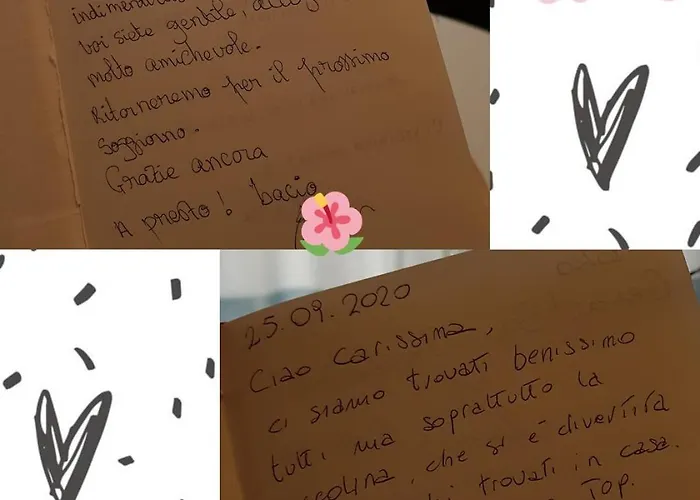 voi siete gentile,
molto amichevole.
Ritorneremo per il prossimo
soggiorno.
Grazie ancora
A presto! bacio
25.09.2020
Ciao Carissima,
ci siamo trovati benissimo
tutti ma soprattutto la
che si è divertita
trovati in casa.
Top.